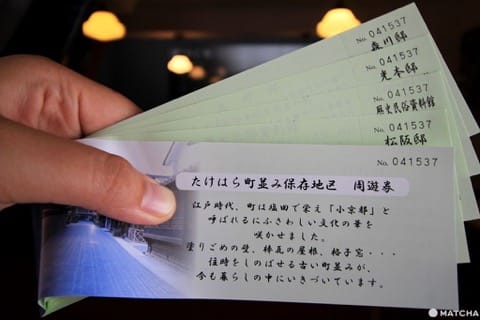 No. 041537
森川邸
No. 041537
光本邸
No. 041537
歴史民俗資料館
No. 041537
松阪邸
No. 041537
たけはら町並み保存地区 周遊券
江戸時代、町は塩田で栄え「小京都」と
呼ばれるにふさわしい文化の華を
咲かせました。
塗りごめの壁、本瓦の屋根、格子窓・・・
往時をしのばせる古い町並みが、
今も暮らしの中にいきづいています。
MATCHA